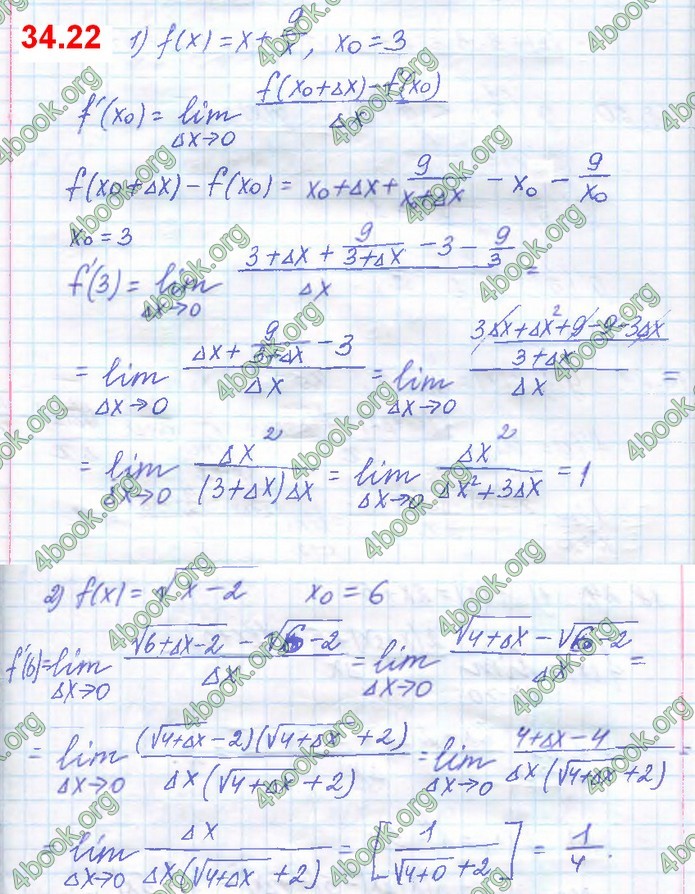 34.22
1) f(x) = x + 9/x, x₀ = 3
f'(x₀) = lim Δx→0 (f(x₀+Δx) – f(x₀))/Δx
f(x₀+Δx) – f(x₀) = x₀ + Δx + 9/(x₀+Δx) – x₀ – 9/x₀
x₀ = 3
f'(3) = lim Δx→0 (3 + Δx + 9/(3+Δx) – 3 – 9/3)/Δx =
= lim Δx→0 (Δx + 9/(3+Δx) – 3)/Δx = lim Δx→0 ((3Δx + Δx² + 9 – 9 – 3Δx)/(3+Δx))/Δx =
= lim Δx→0 Δx²/((3+Δx)Δx) = lim Δx→0 Δx²/(Δx²+3Δx) = 1
2) f(x) = √(x–2) x₀ = 6
f'(6) = lim Δx→0 (√(6+Δx–2) – √(6–2))/Δx = lim Δx→0 (√(4+Δx) – √(6–2))/Δx =
= lim Δx→0 (√(4+Δx) – 2)(√(4+Δx) + 2)/(Δx(√(4+Δx) + 2)) = lim Δx→0 (4+Δx–4)/(Δx(√(4+Δx) + 2)) =
= lim Δx→0 Δx/(Δx(√(4+Δx) + 2)) = [1/(√(4+0) + 2)] = 1/4.
4book.org